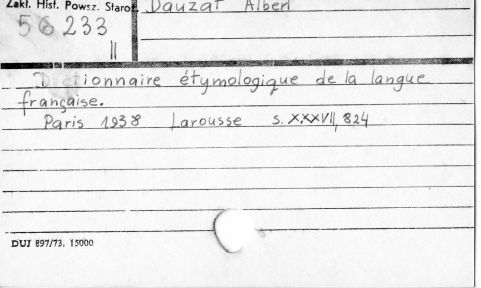 Zakł. Hist. Powsz. Staroż.
Dauzat Albert
56 233
II
Dictionnaire étymologique de la langue
française.
Paris 1938 Larousse s. XXXVII, 824
DUJ 897/73. 15000